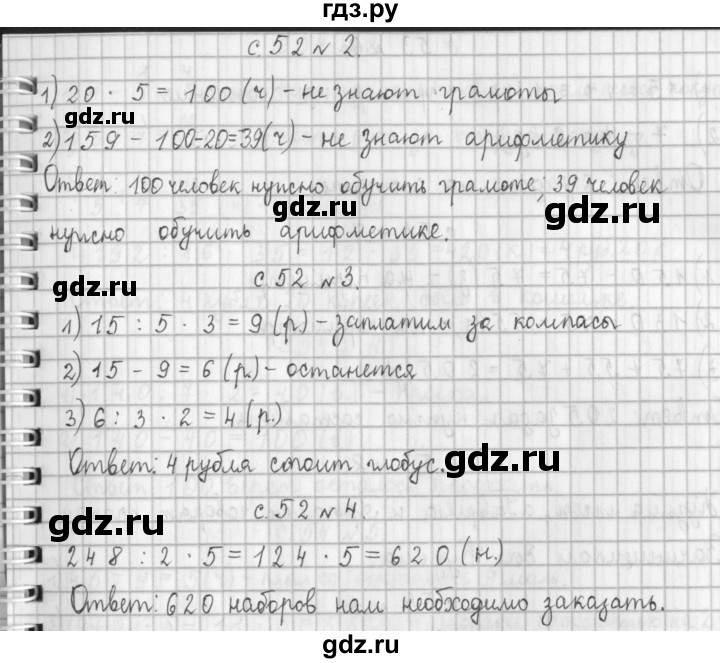 гдз.ру
с. 52 № 2.
1) 20 · 5 = 100 (ч) – не знают грамоты
gdz.ru
2) 159 – 100–20=39(ч) – не знают арифметику
Ответ: 100 человек нужно обучить грамоте; 39 человек
gdz.ru
нужно обучить арифметике.
с. 52 № 3.
gdz.ru
1) 15 : 5 · 3 = 9 (р.) – заплатим за компасы
2) 15 – 9 = 6 (р.) – останется
3) 6 : 3 · 2 = 4 (р.)
Ответ: 4 рубля стоит глобус.
gdz.ru
с. 52 № 4.
gdz.ru
248 : 2 · 5 = 124 · 5 = 620 (н.)
Ответ: 620 наборов нам необходимо заказать.
gdz.ru